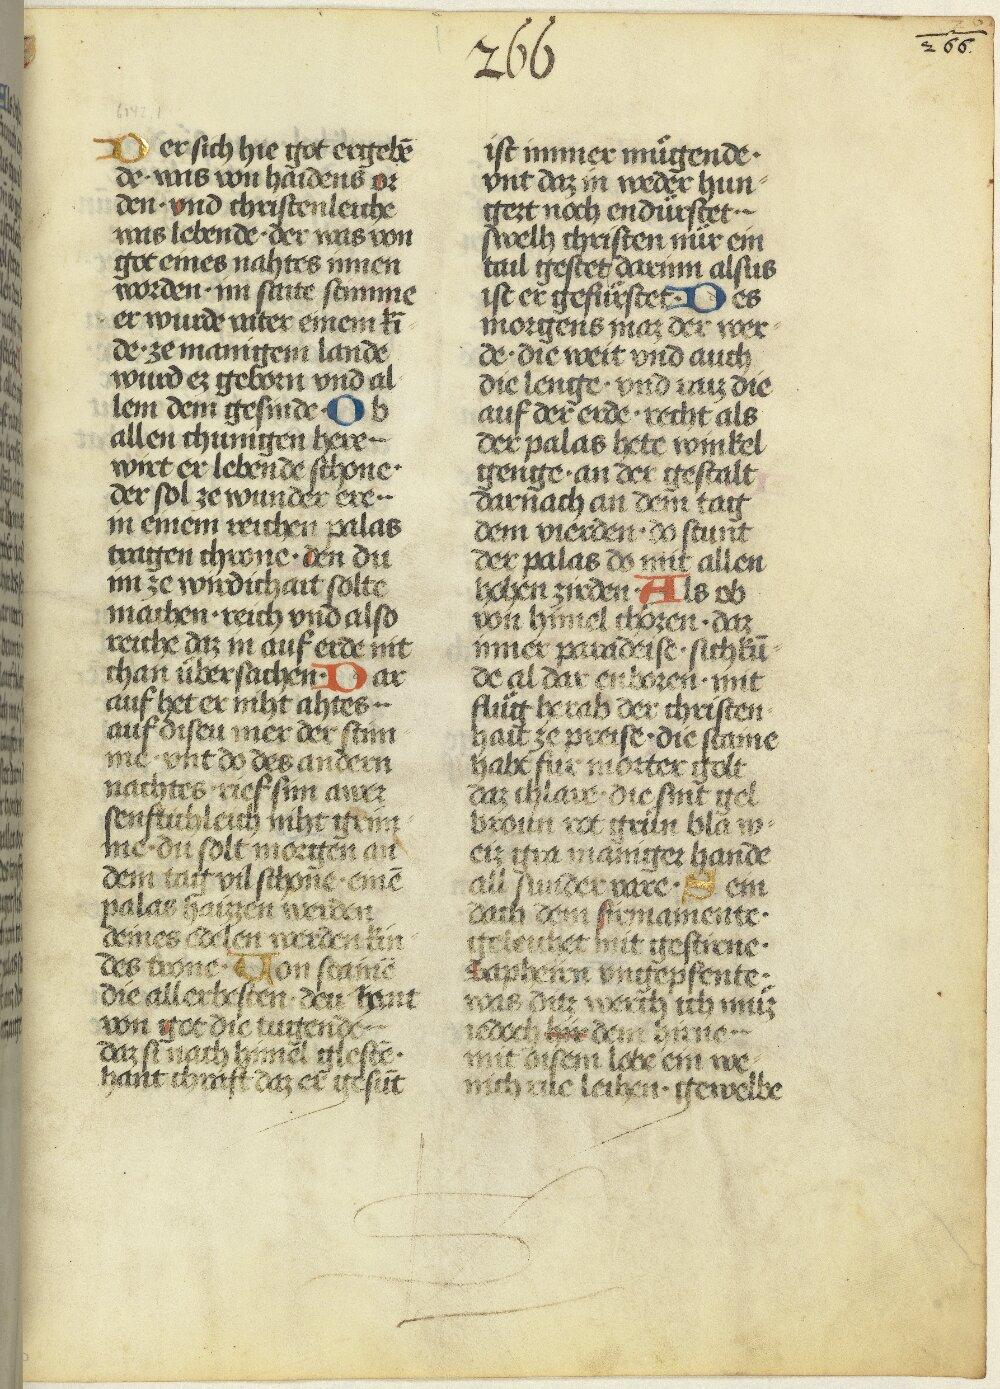 266
266.
Der sich hie got ergebē
de · was von haidens or
den · vnd christenleiche
was lebende · der was von
got eines nahtes innen
worden · im saite stimme
er wurde vater einem ki
de · ze manigem lande
wurd ez geborn vnd al
lem dem gesinde · Ob
allen chunigen here ·
wirt er lebende schone ·
der sol ze wunder ere ·
in einem reichen palas
tragen chrone · den du
im ze wirdichait solte
machen · reich vnd also
reiche daz in auf erde nit
chan übersachen · Dar
auf het er niht ahtes ·
auf diseu mer der stim
me · vnt do des andern
nachtes · rief sim awer
senftichleich niht grim
me · du solt morgen an
dem tag vil schone · einē
palas haizzen werden
deines edelen werden kin
des trone · Von stainē
die allerbesten · den hant
von got die tugende ·
daz si nach himel glestē ·
hant christ daz er gesūt
ist immer mügende ·
vnt daz in weder hun
gert noch endürstet ·
swelh christen nür ein
tail gestet darinn alsus
ist er gefürstet · Des
morgens maz der wer
de · die weit vnd auch
die lenge · vnd waz die
auf der erde · recht als
der palas hete winkel
genge · an der gestalt
darnach an dem tag
dem vierden · do stunt
der palas do mit allen
hohen zirden · Als ob
von himel chören · daz
inner paradeise · sich kū
de al dar enboren · mit
flüg herab der christen
hait ze preise · die staine
habt für morter golt
daz chlare · die sint gel
broun rot grün bla w
eiz gra maniger hande
all sunder vare · Sein
dach dem firmamente ·
geleuhet mit gestirne ·
Sapheirn vngepfente ·
was ditz werch ich müz
iedoch hir dem hirne ·
mit disem lobe ein we
nich rüe leihen · gewelbe